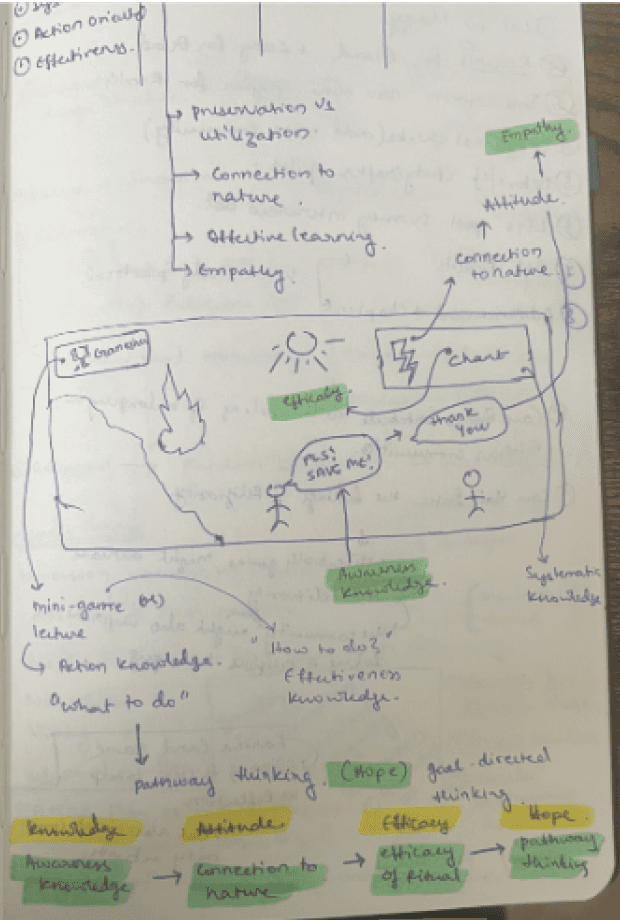 Action Orient
Effectiveness.
preservation vs
utilization
Connection to
nature.
Affective learning.
Empathy.
Empathy.
Attitude.
Connection
to nature.
Ganesha
Chant
efficacy.
Thank
You
PLS!
SAVE ME!
Awareness
knowledge.
Systematic
knowledge
mini-game (or)
lecture
Action knowledge.
"what to do"
"How to do?"
Effectiveness
knowledge.
pathway thinking. (Hope) goal-directed
thinking.
Knowledge Attitude. Efficacy Hope.
Awareness
knowledge
Connection to
nature
efficacy
of Ritual
pathway
thinking